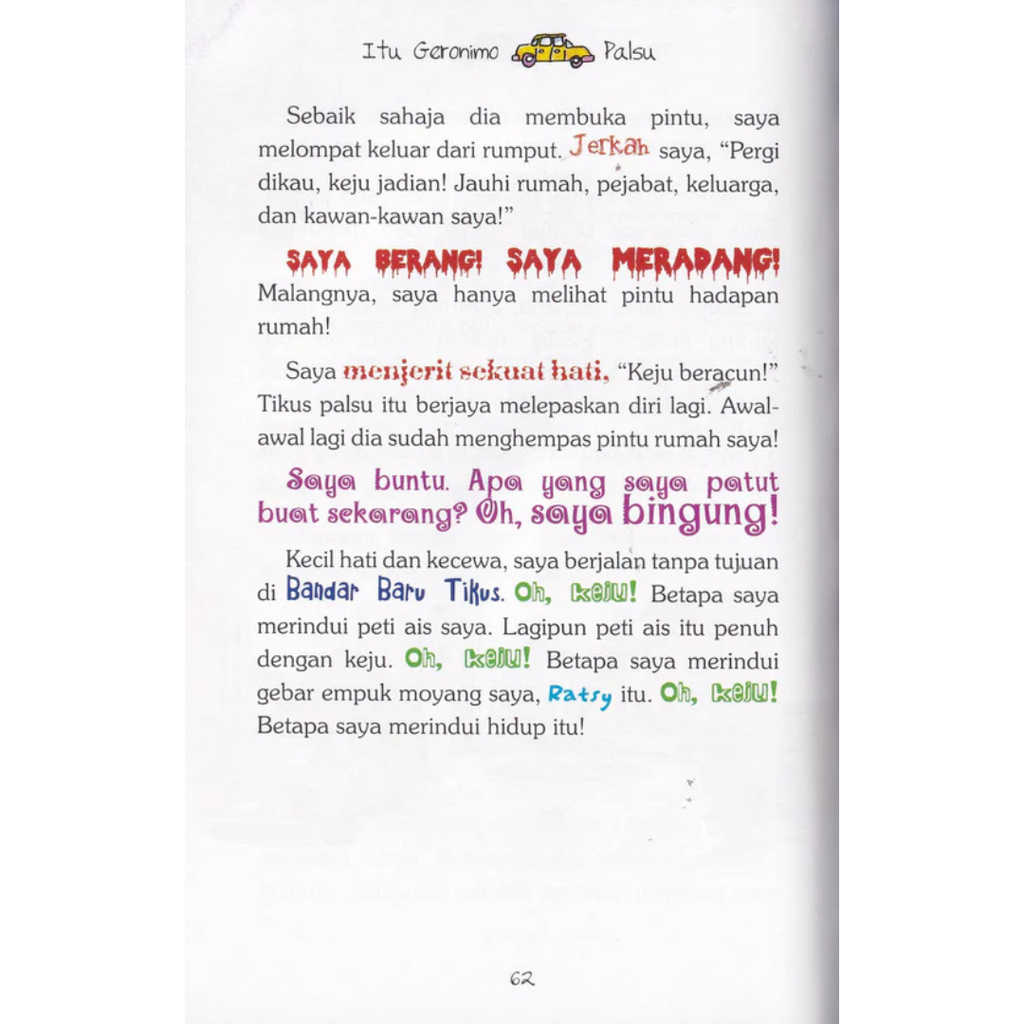 Itu Geronimo Palsu
Sebaik sahaja dia membuka pintu, saya
melompat keluar dari rumput. Jerkah saya, “Pergi
dikau, keju jadian! Jauhi rumah, pejabat, keluarga,
dan kawan-kawan saya!”
SAYA BERANG! SAYA MERADANG!
Malangnya, saya hanya melihat pintu hadapan
rumah!
Saya menjerit sekuat hati, “Keju beracun!”
Tikus palsu itu berjaya melepaskan diri lagi. Awal-
awal lagi dia sudah menghempas pintu rumah saya!
Saya buntu. Apa yang saya patut
buat sekarang? Oh, saya bingung!
Kecil hati dan kecewa, saya berjalan tanpa tujuan
di Bandar Baru Tikus. Oh, keju! Betapa saya
merindui peti ais saya. Lagipun peti ais itu penuh
dengan keju. Oh, keju! Betapa saya merindui
gebar empuk moyang saya, Ratsy itu. Oh, keju!
Betapa saya merindui hidup itu!
62